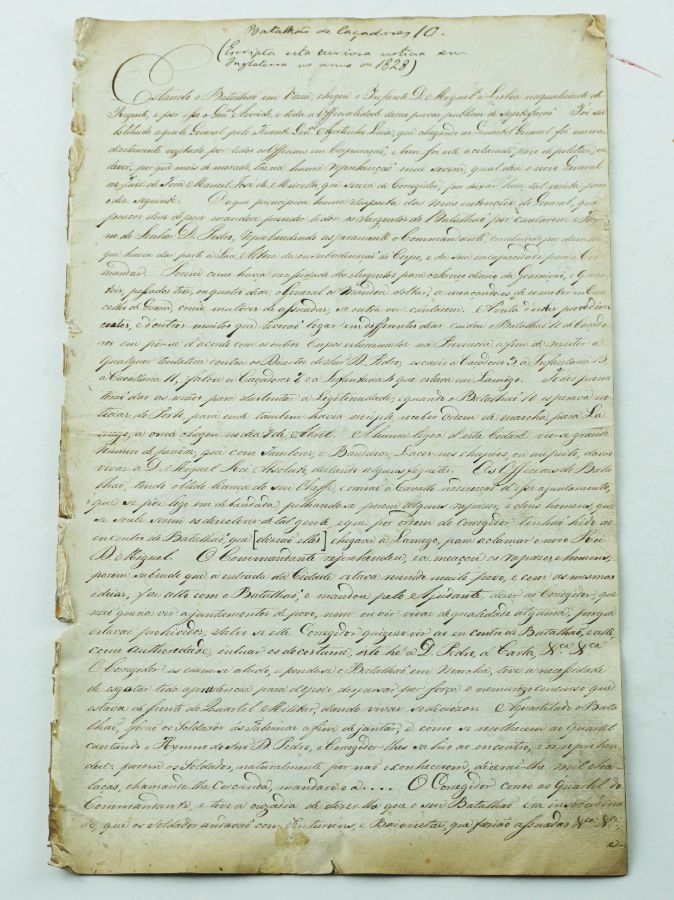 Batalhão de Caçadores 10.
(Escripta esta curiosa noticia em
Inglaterra no anno de 1828)
Estando o Batalhão em Vizeu, chegou o Infante D. Miguel a Lisboa na qualidade de
Regente, e por isso o Gen.al Azeredo, e toda a Officialidade derão provas publicas de satisfação. Foi su-
bstituido aquele General pelo Gen.al Agostinho Luiz, que chegando ao Quartel General foi imme-
diatamente visitado por todos os Officiaes em Corporação, e bem
dever, por que mais de
ao Juiz de Fora Manoel José de que servia de Corregidor, por deixar huma tal visita para
o dia seguinte. Daqui principiou huma suspeita das más intençoens do General, que
poucos dias depois mandou prender todos os Sargentos do Batalhão por cantarem o Hym-
no do Senhor D. Pedro, reprehendendo asperamente o Commandante, concluindo por dizer
que havia dar parte a Sua Alteza da insubordinação do Corpo, e da sua incapacidade para o Com-
mandar. Porem como havia necessidade dos Sargentos para o Serviço diario da Guarnição, e Quar-
teis, passados tres, ou quatro dias, o General os mandou soltar, ameaçando-os de os metter em Con-
celho de Guerra, como motores de assuadas, se outra vez cantassem. A vista d'estes preceden-
centes, e d'outros muitos que tiverão logar em differentes dias cuidou o Batalhão 10 de Caçado-
res em pôr-se d'acordo com os outros Corpos estacionados na Provincia a fim de resistir a
qualquer tentativa contra os Direitos do Senhor D. Pedro; escreveo a Caçadores 3, a Infantaria 15
a Cavallaria 11, fallou a Caçadores 7, e a Infantaria que estava em Lamego. Todos promet-
terão dar as mãos para sustentar a Legitimidade; e quando o Batalhão 10 esperava no-
ticias do Porto, para onde tambem havia escripto, recebeo ordem de marcha para La-
mego, aonde chegou no dia de Abril. A huma legoa d'esta Cidade vio-se grande
numero de pessoas, que com Tambores, e Bandeiras, Laços nos chapeos, ou no peito, davão
vivas a D. Miguel Rei Absoluto, deitando alguns foguetes. Os Officiaes do Bata-
lhão, tendo obtido licença do seu Cheffe, correrão a Cavallo na direcção d'esse ajuntamento,
que se pôs logo em debandada, pilhando-se porem alguns rapazes, e dous homens, que
se soube serem os directores de tal gente, e que por ordem do Corregidor tinhão hido ao
encontro do Batalhão, que [dizião elles] chegava a Lamego, para aclamar o novo Rei
D. Miguel. O Commandante reprehendeu, e ameaçou os rapazes, e homens;
porem sabendo que á entrada da Cidade estava reunido muito povo, e com as mesmas
ideias, fez alto com o Batalhão, e mandou pelo Ajudante dizer ao Corregidor, que
não queria ver ajuntamentos de povo, nem ouvir vivas de qualidade alguma, porque
estavão prohibidos, salvo se elle Corregidor quizesse vir ao encontro do Batalhão, e alli,
como Authoridade, intoar os do costume, isto he a D. Pedro, á Carta &ca. &ca
O Corregidor escusou-se a tudo, e pondo-se o Batalhão em Marcha, teve a necessidade
de esgotar toda a prudencia para depois dispersar por força o numerozo concurso que
estava da frente do Quartel Militar, dando vivas sediciozos. Aquartelado o Bata-
lhão, forão os Soldados ás Tabernas a fim de jantar, e como se recolhessem ao Quartel
cantando o Hymno do Snr. D. Pedro, o Corregidor lhes sahio ao encontro, e os reprehen-
deu; porem os Soldados, naturalmente por não o conhecerem, dicerão-lhe mil cha-
laças, chamando-lhe Corcunda, mandarão-o a.... O Corregidor correo ao Quartel do
Commandante, e teve a ouzadia de dizer-lhe que o seu Batalhão era insubordina-
do, que os Soldados andavão com Cinturoens, e Baionetas, que fazião assuadas &ca. &ca.